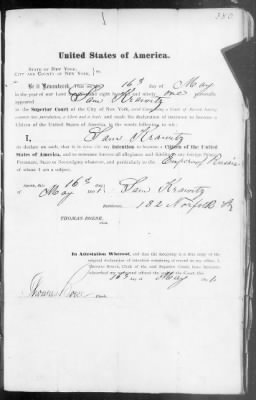 350
United States of America.
STATE OF NEW YORK,
CITY AND COUNTY OF NEW YORK, ss.
Be it Remembered, That on the 16th day of May
in the year of our Lord one thousand eight hundred and ninety one personally
appeared Sam Krawitz
in the Superior Court of the City of New York,
and made his declaration of intention to become a
Citizen of the United States of America, in the words following, to wit:
I, Sam Krawitz
do declare on oath, that it is bona fide my Intention to become a Citizen of the United
States of America, and to renounce forever all allegiance and fidelity to any foreign Prince,
Potentate, State or Sovereignty whatever, and particularly to the Emperor of Russia
of whom I am a subject.
Sworn, this 16th
May Sam Krawitz
Residence, 132 Norfolk St
THOMAS BOESE,
Clerk.
In Attestation Whereof, and that the foregoing is a true copy of the
original declaration of intention remaining of record in my office, I,
THOMAS BOESE, Clerk of the said Superior Court, have hereunto
subscribed my name and affixed the seal of the Court, this
16th day of May
Thomas Boese Clerk.